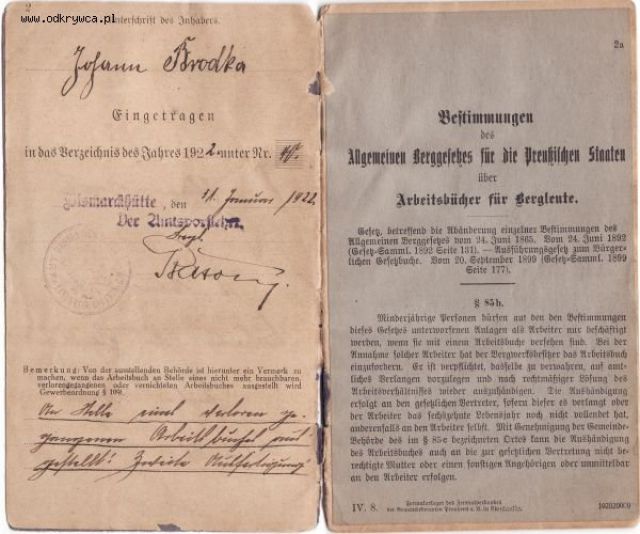 www.odkrywca.pl
Unterschrift des Inhabers.
Johann Brodka
Eingetragen
in das Verzeichnis des Jahres 1922 unter Nr.
Bismarckhütte, den 11. Januar 1922.
Der Amtsvorsteher.
Bemerkung: Von der ausstellenden Behörde ist hierunter ein Vermerk zu
machen, wenn das Arbeitsbuch an Stelle eines nicht mehr brauchbaren,
verlorengegangenen oder vernichteten Arbeitsbuches ausgestellt wird
Gewerbeordnung § 109.
An Stelle eines verloren ge-
gangenen Arbeitsbuches aus-
gestellt! Zweite Ausfertigung!
2a
Bestimmungen
des
Allgemeinen Berggesetzes für die Preußischen Staaten
über
Arbeitsbücher für Bergleute.
Gesetz, betreffend die Abänderung einzelner Bestimmungen des
Allgemeinen Berggesetzes vom 24. Juni 1865. Vom 24. Juni 1892
(Gesetz-Samml. 1892 Seite 131). — Ausführungsgesetz zum Bürger-
lichen Gesetzbuche. Vom 20. September 1899 (Gesetz-Samml. 1899
Seite 177).
§ 85h.
Minderjährige Personen dürfen auf den den Bestimmungen
dieses Gesetzes unterworfenen Anlagen als Arbeiter nur beschäftigt
werden, wenn sie mit einem Arbeitsbuche versehen sind. Bei der
Annahme solcher Arbeiter hat der Bergwerksbesitzer das Arbeitsbuch
einzufordern. Er ist verpflichtet, dasselbe zu verwahren, auf amt-
liches Verlangen vorzulegen und nach rechtmäßiger Lösung des
Arbeitsverhältnisses wieder auszuhändigen. Die Aushändigung
erfolgt an den gesetzlichen Vertreter, sofern dieser es verlangt oder
der Arbeiter das sechszehnte Lebensjahr noch nicht vollendet hat,
anderenfalls an den Arbeiter selbst. Mit Genehmigung der Gemeinde-
Behörde des im § 85c bezeichneten Ortes kann die Aushändigung
des Arbeitsbuches auch an die zur gesetzlichen Vertretung nicht be-
rechtigte Mutter oder einen sonstigen Angehörigen oder unmittelbar
an den Arbeiter erfolgen.
IV. 8.